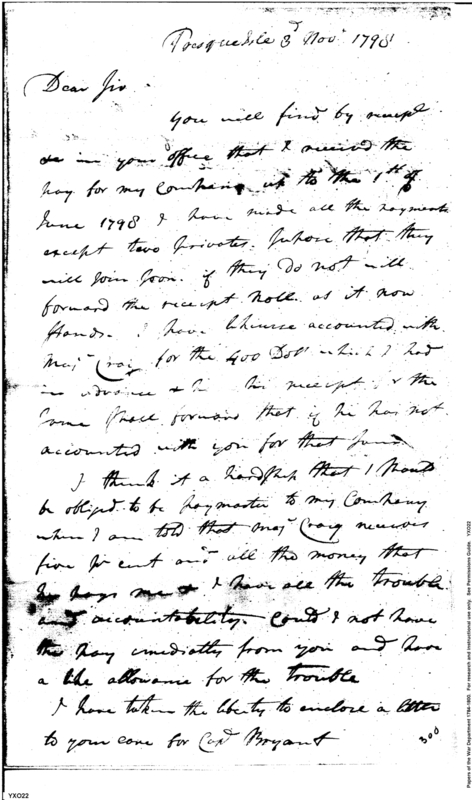 Presque Isle 3d Novr 1798
Dear Sir
You will find by receipt
in your office that I received the
pay for my Company up to the 1st of
June 1798 I have made all the payments
except two privates. Suppose that they
will Join Soon. if they do not will
forward the receipt Roll as it now
Stands. I have likewise accounted with
Majr Craig for the 400 Dolls which I had
in advance & his receipt for the
Same Shall forward that if he has not
accounted with you for that Sum
I think it a hardship that I Should
be obliged to be paymaster to my Company
when I am told that Majr Craig receives
five pr cent and all the money that
he pays me & I have all the trouble
and accountability. Could I not have
the pay imediatly from you and have
a like allowance for the trouble
I have taken the liberty to enclose a letter
to your care for Capt Bryant
300
YXO22
Papers of the War Department 1784-1800. For research and instructional use only. See Permissions Guide. YXO22